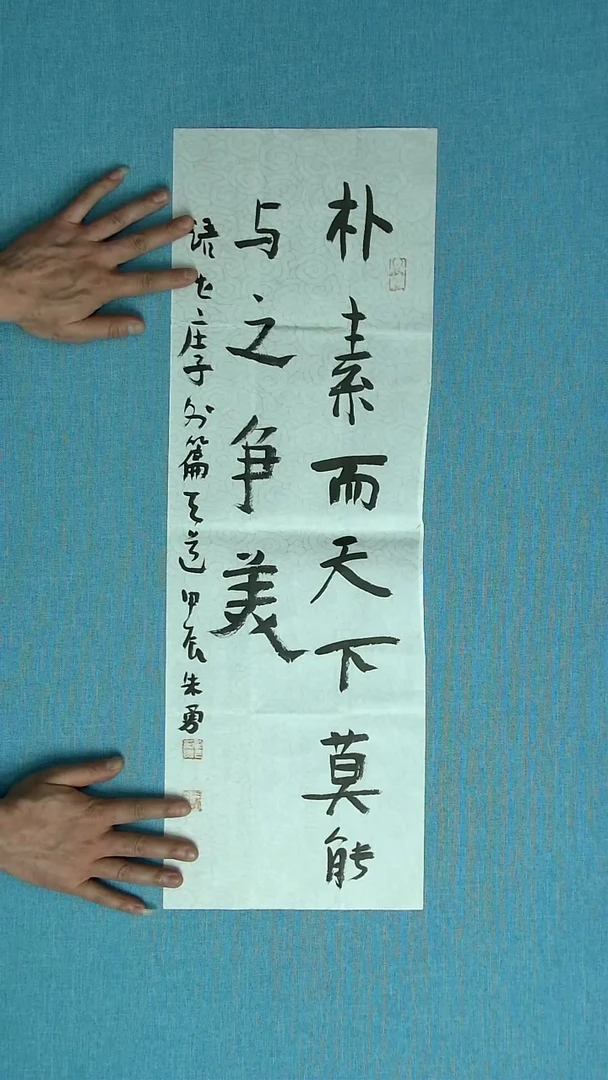 朴素而天下莫能
与之争美
语出庄子外篇天道甲辰朱勇